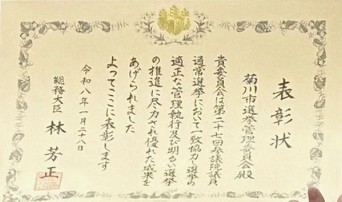 表彰状
菊川市選挙管理委員会殿
貴委員会は第二十七回参議院議員
通常選挙において一致協力選挙の
適正な管理執行及び明るい選挙
の推進に尽力され優れた成果を
あげられました
よってここに表彰します
令和八年一月二十八日
総務大臣 林芳正